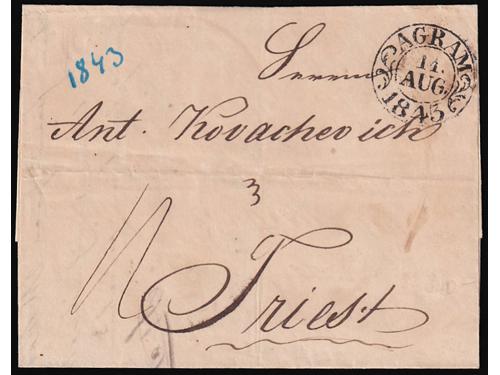 1843
AGRAM
14.
AUG.
1843
Herrn
Ant. Kovachevich
3
Triest